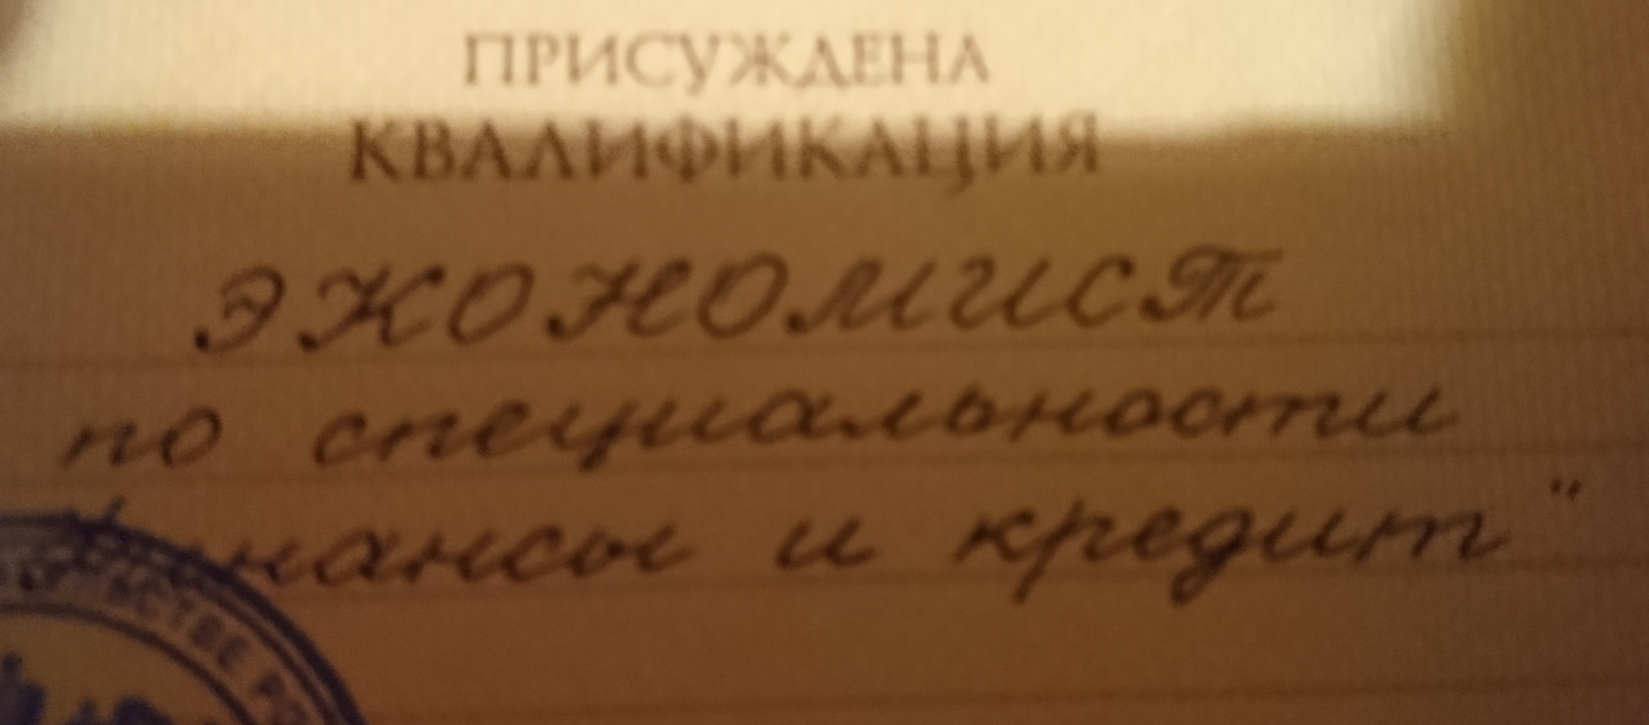 ПРИСУЖДЕНА
КВАЛИФИКАЦИЯ
ЭКОНОМИСТ
по специальности
"Финансы и кредит"